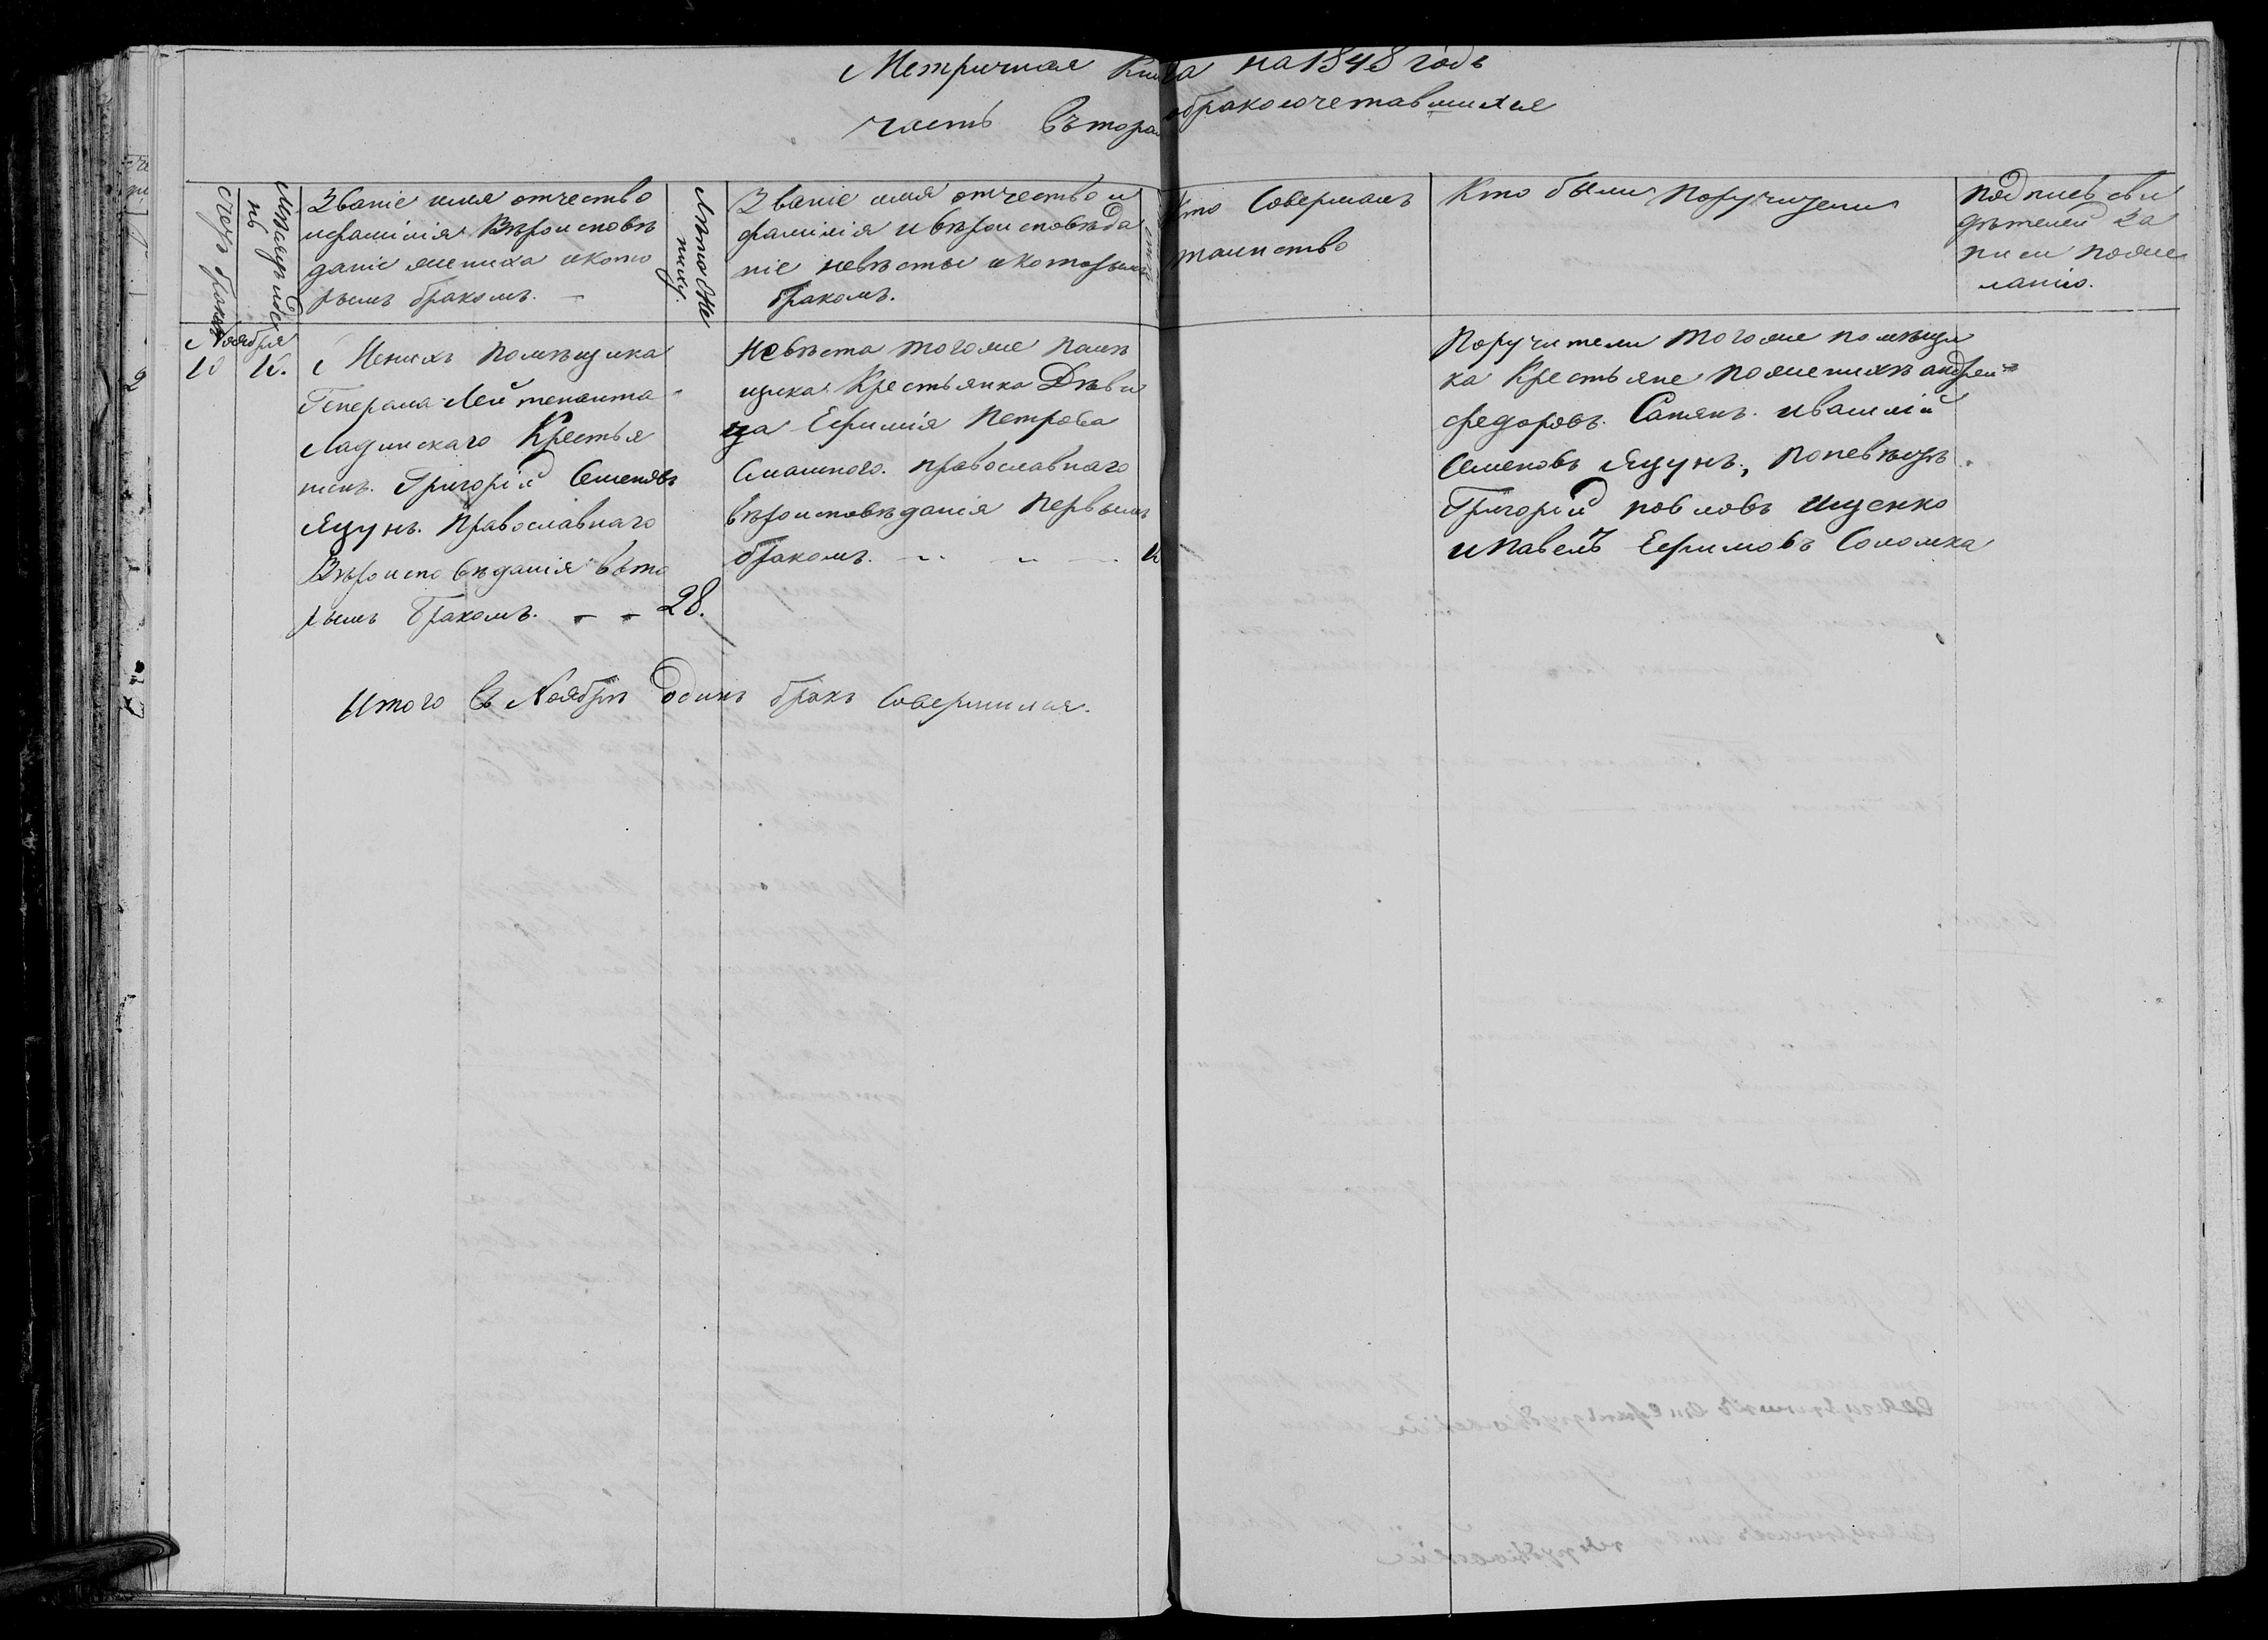 Метричная Книга на 1848 годъ
часть въторая обракосочетавшихся
Счетъ браковъ
Мѣсяцъ и день
Званіе имя отчество
ифамилія Вѣроисповѣ
даніе жениха икото
рымъ бракомъ. —
Лѣто жениху
Званіе имя отчество и
фамилія ивѣроисповѣда
ніе невѣсты икоторымъ
бракомъ.
Кто Совершалъ
таинство
Кто были Поручители
Подпись сви
дѣтелей За
писи пожe
ланію.
Ноября
10 15.
Женихъ Помѣщика
Генерала Лейтенанта
Ладинскаго Крестья
нинъ. Григорій Семеновъ
Яцунъ. Православнаго
Вѣроисповѣданія въто
рымъ бракомъ. — — 28.
Невѣста тогоже помѣ
щика Крестьянка Дѣви
ца Ефимія Петрова
православнаго
вѣроисповѣданія Первымъ
бракомъ.
Поручители тогоже помѣщи
ка Крестьяне пожeнихѣ андрей
федоровъ. Сапянъ. ивасилій
Семеновъ Яцунъ., поневѣсте
Григорій повловъ Ищенко
иПавелъ Ефимовъ Соломка
Итого Въ Ноябрѣ Одинъ бракъ Совершился.